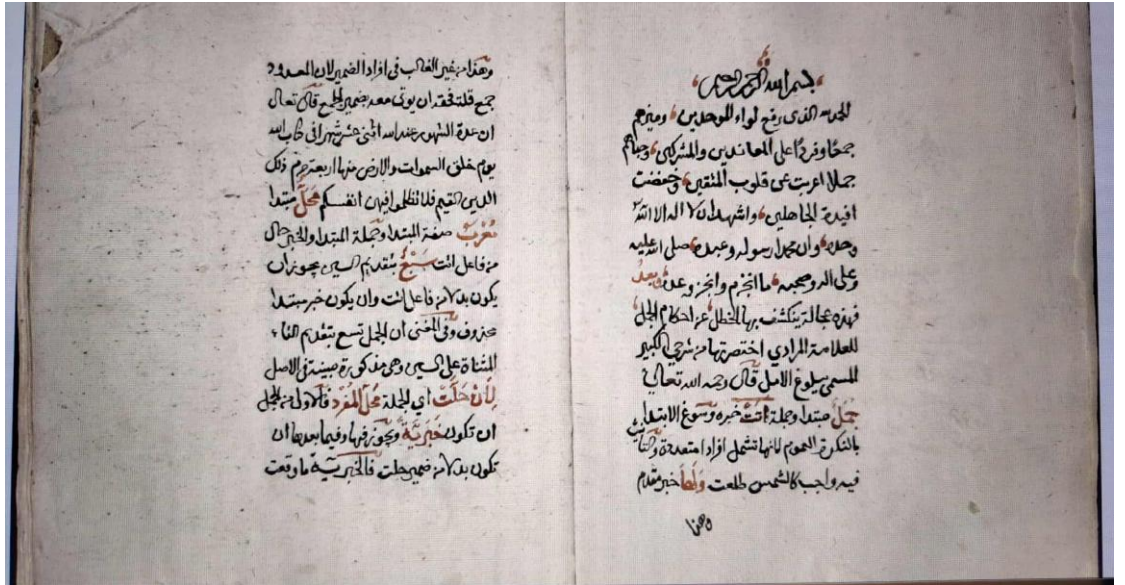 بسم الله الرحمن الرحيم
الحمد لله الذي رفع لواء الموحدين وميزهم
جمعًا وفردًا على المعاندين والمشركين وجباهم
جملا اعربت عن قلوب المتقين وخفضت
افيدة الجاهلين واشهد ان لا اله الا الله
وحده وان محمدا رسوله وعبده صلى الله عليه
وعلى اله وصحبه ما انجزم وانجز وعده وبعد
فهذه عجالة ينكشف بها الخطل عن احكام الجمل
للعلامة المرادي اختصرتها من شرحي الكبير
المسمى ببلوغ الامل قال رحمه الله تعالى
جُمَلٌ مبتدا وجملة اتَتْ خبره وسوغ الابتدا
بالنكرة العموم لانها تشمل افرادا متعددة والتانيث
فيه واجب كالشمس طلعت وَلَهَا خبر مقدم
وهذا
وهذا من غير الغالب في افراد الضمير لان المعدود
جمع قلة فحقه ان يوتى معه بضمير الجمع قال تعالى
ان عدة الشهور عند الله اثنى عشر شهرا في كتاب الله
يوم خلق السموات والارض منها اربعة حرم ذلك
الدين القيم فلا تظلموا فيهن انفسكم مَحَلٌّ مبتدا
مُعْرَبٌ صفة المبتدا وجملة المبتدا والخبر حال
من فاعل اتت سَبْعٌ بتقديم السين يجوز ان
يكون بدلا من فاعل اتت وان يكون خبر مبتدا
محذوف وفي المغنى ان الجمل تسع بتقديم التاء
المثناة على السين وهي مذكورة مبينة في الاصل
لِأَنْ حَلَّتْ اي الجملة مَحَلَّ المُفْرَدِ فالاولى من الجمل
ان تكون خَبَرِيَّةً ويجوز فيها وفيما بعدها ان
تكون بدلا من ضمير حلت فالخبرية ما وقعت